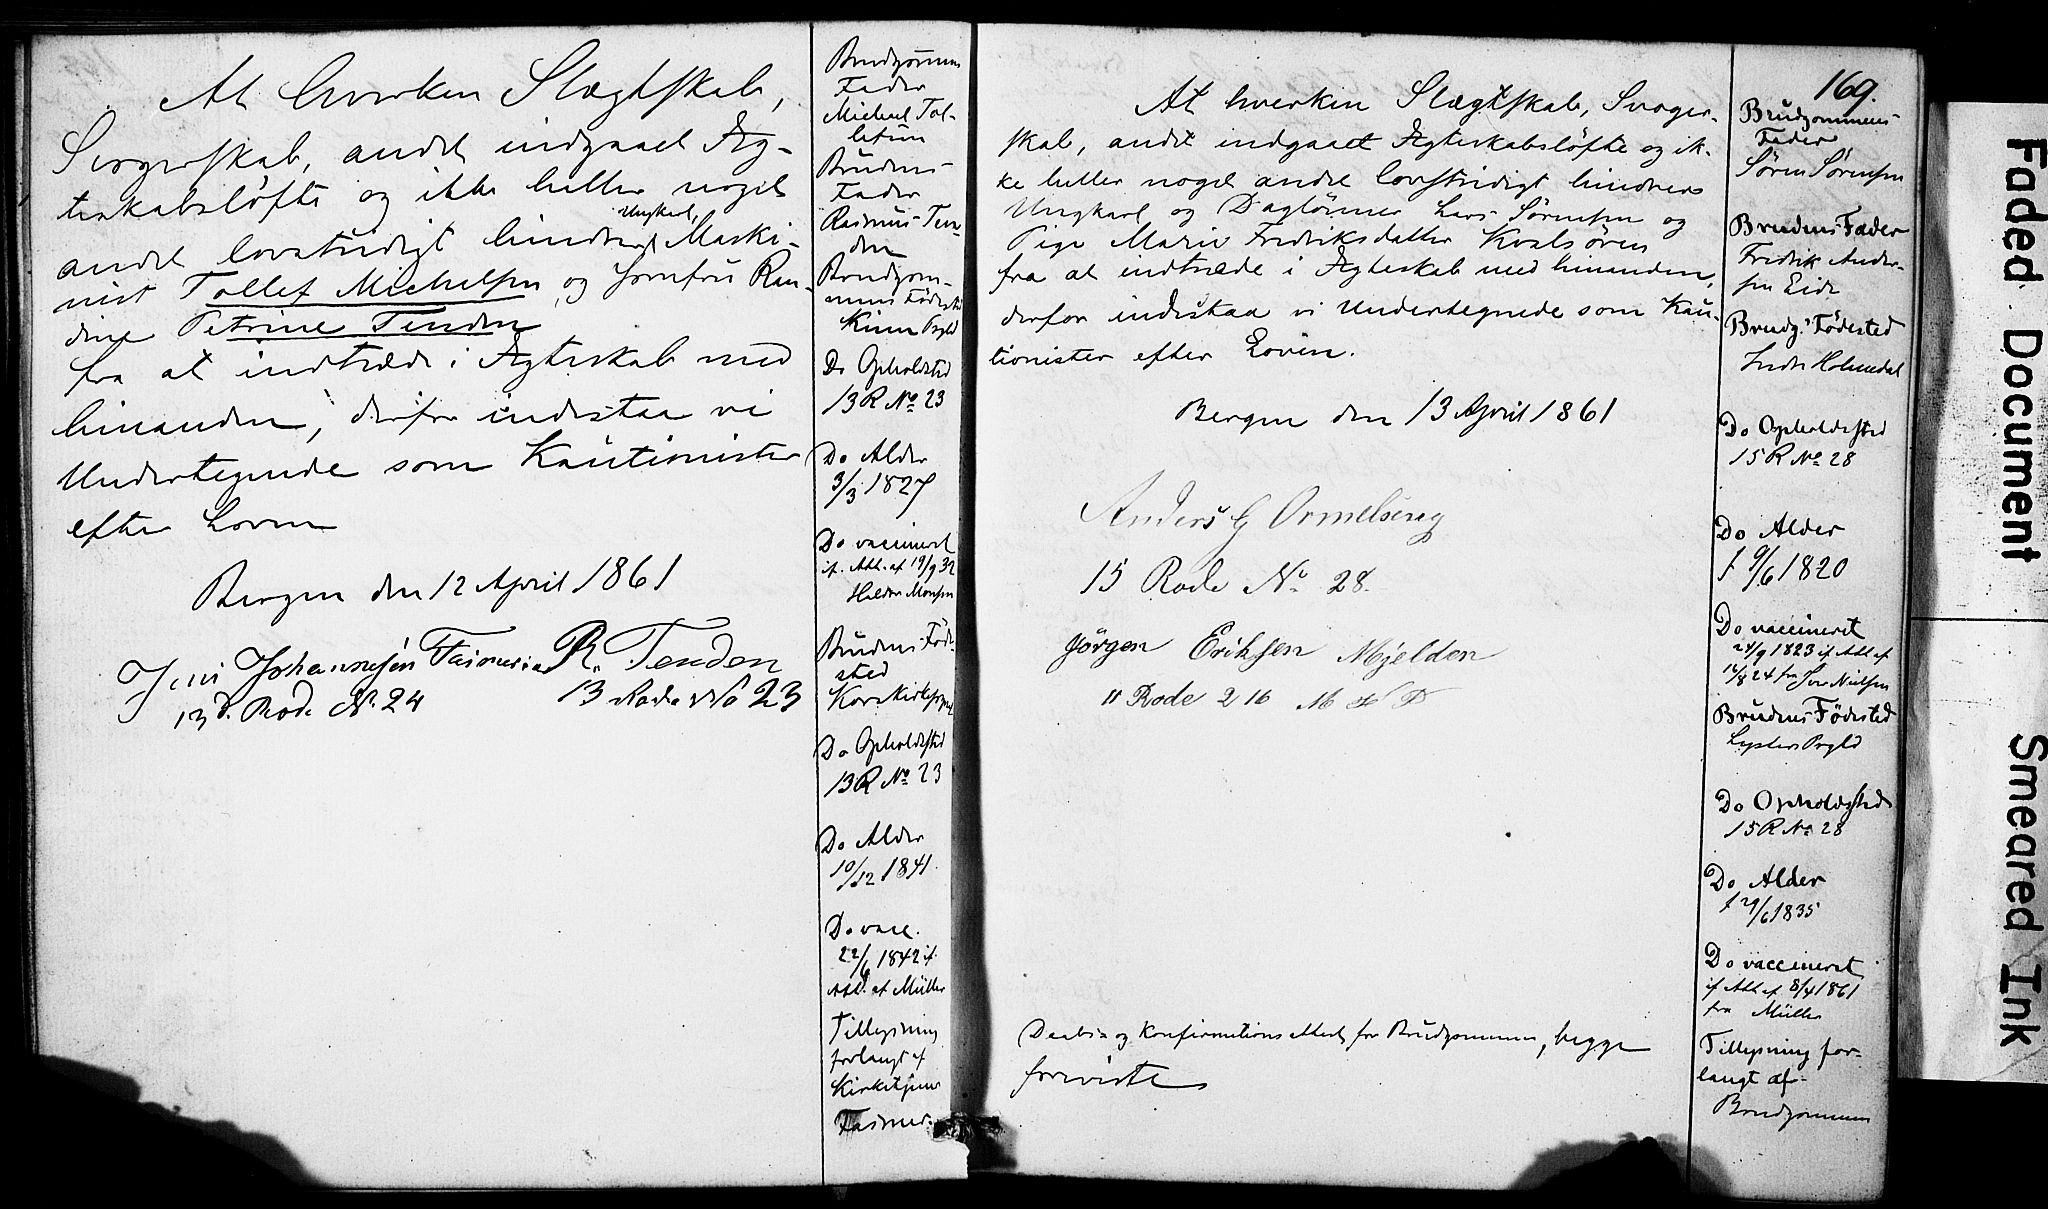 At hverken Slægtskab,
Svogerskab, andet indgaaet Æg-
teskabsløfte og ikke heller noget
andet lovstridigt hindrer Ungkarl, Maski-
nist Tollef Michelsen og Jomfru Ran-
dine Petrine Tenden
fra at indtræde i Ægteskab med
hinanden, derfor indestaa vi
Undertegnede som Kautionister
efter Loven
Bergen den 12 April 1861
Jens Johannesen Fasmer R. Tenden
13d. Rode No. 24 13 Rode No 23
Brudgommens
Fader
Michael Tol-
lefsen
Brudens
Fader
Rasmus Ten-
den
Brudgom-
mens Fødested
Kinn Prgld
Do Opholdsted
13 R No 23
Do Alder
3/3 1827
Do vaccineret
if. Att. af 19/9 32
Helder Monsen
Brudens Fød-
sted
Korskirkeprgld
Do Opholdsted
13 R No 23
Do Alder
10/12 1841.
Do vacc.
22/6 1842 if.
Att. af Müller
Tillysning
forlangt af
Kirketjener
Fasmer.
169.
At hverken Slægtskab, Svoger-
skab, andet indgaaet Ægteskabsløfte og ik-
ke heller noget andet lovstridigt hindrer
Ungkarl og Daglønner Lars Sørensen og
Pige Marie Fredriksdatter Kvalsøren
fra at indtræde i Ægteskab med hinanden,
derfor indestaa vi Undertegnede som Kau-
tionister efter Loven.
Bergen den 13 April 1861
Anders G Ormelseng
15 Rode No 28.
Jørgen Eriksen Mjelden
11 Rode 2 16 M f P
Daabs- og Konfirmations Attest for Brudgommen, begge
foreviste
Brudgommens
Fader
Søren Sørensen
Brudens Fader
Fredrik Ander-
sen Eide
Brudg. Fødested
Indre Holmedal
Do Opholdssted
15 R No 28
Do Alder
f 9/6 1820
Do vaccineret
24/9 1823 if Att af
14/8 24 fra Iver Nielsen
Brudens Fødested
Lysters Prgld
Do Opholdssted
15 R No 28
Do Alder
f 29/6 1835
Do vaccineret
if Att af 8/4 1861
fra Müller
Tillysning for-
langt af
Brudgommen
Faded Document
Smeared Ink